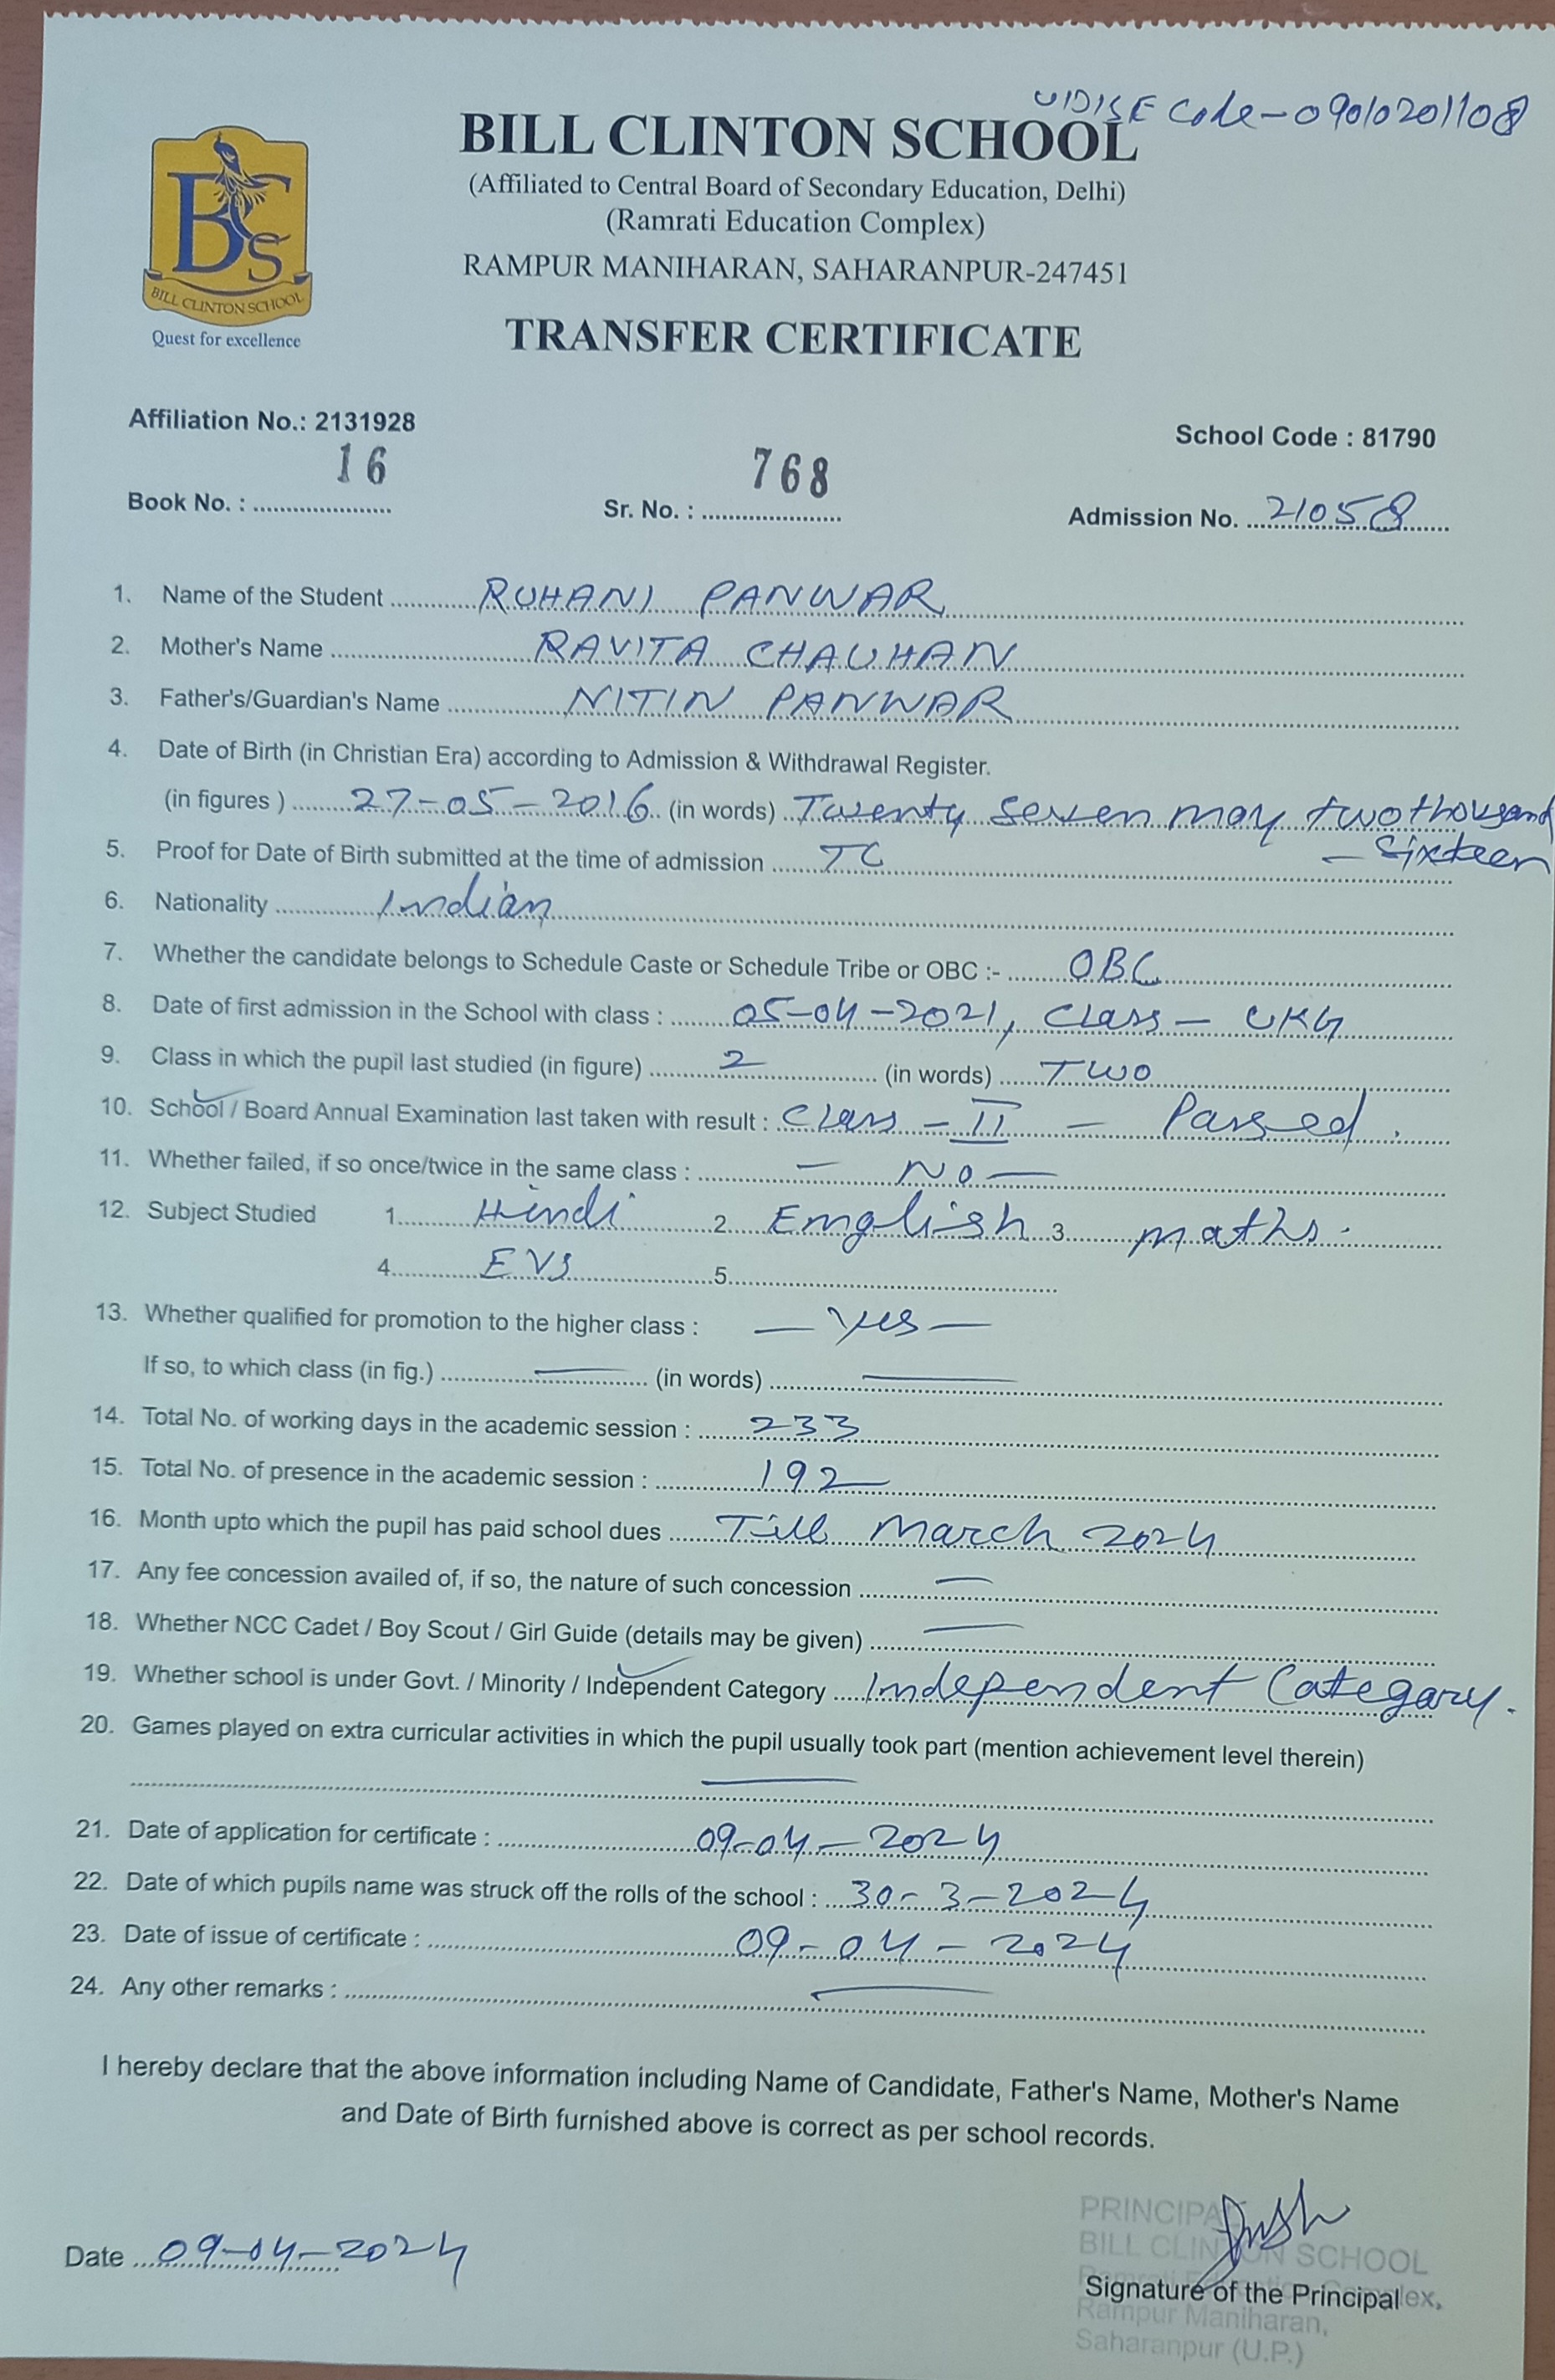 UDISE Code-09010201108
BILL CLINTON SCHOOL
(Affiliated to Central Board of Secondary Education, Delhi)
(Ramrati Education Complex)
RAMPUR MANIHARAN, SAHARANPUR-247451
BCS
BILL CLINTON SCHOOL
Quest for excellence
TRANSFER CERTIFICATE
Affiliation No.: 2131928 School Code : 81790
Book No. : 16 Sr. No. : 768 Admission No. 21058
1. Name of the Student RUHANI PANWAR
2. Mother's Name RAVITA CHAUHAN
3. Father's/Guardian's Name NITIN PANWAR
4. Date of Birth (in Christian Era) according to Admission & Withdrawal Register.
(in figures ) 27-05-2016 (in words) Twenty seven may two thousand
- Sixteen
5. Proof for Date of Birth submitted at the time of admission TC
6. Nationality Indian
7. Whether the candidate belongs to Schedule Caste or Schedule Tribe or OBC :- OBC
8. Date of first admission in the School with class : 05-04-2021, Class - UKG
9. Class in which the pupil last studied (in figure) 2 (in words) TWO
10. School / Board Annual Examination last taken with result : Class - II - Passed.
11. Whether failed, if so once/twice in the same class : - No -
12. Subject Studied 1. Hindi 2. English 3. maths.
4. EVS 5.
13. Whether qualified for promotion to the higher class : - Yes -
If so, to which class (in fig.) — (in words) —
14. Total No. of working days in the academic session : 233
15. Total No. of presence in the academic session : 192
16. Month upto which the pupil has paid school dues Till March 2024
17. Any fee concession availed of, if so, the nature of such concession —
18. Whether NCC Cadet / Boy Scout / Girl Guide (details may be given) —
19. Whether school is under Govt. / Minority / Independent Category Independent Category.
20. Games played on extra curricular activities in which the pupil usually took part (mention achievement level therein)
—
21. Date of application for certificate : 09-04-2024
22. Date of which pupils name was struck off the rolls of the school : 30-3-2024
23. Date of issue of certificate : 09-04-2024
24. Any other remarks : —
I hereby declare that the above information including Name of Candidate, Father's Name, Mother's Name
and Date of Birth furnished above is correct as per school records.
Date 09-04-2024
PRINCIPAL
BILL CLINTON SCHOOL
Signature of the Principal
Rampur Maniharan,
Saharanpur (U.P.)